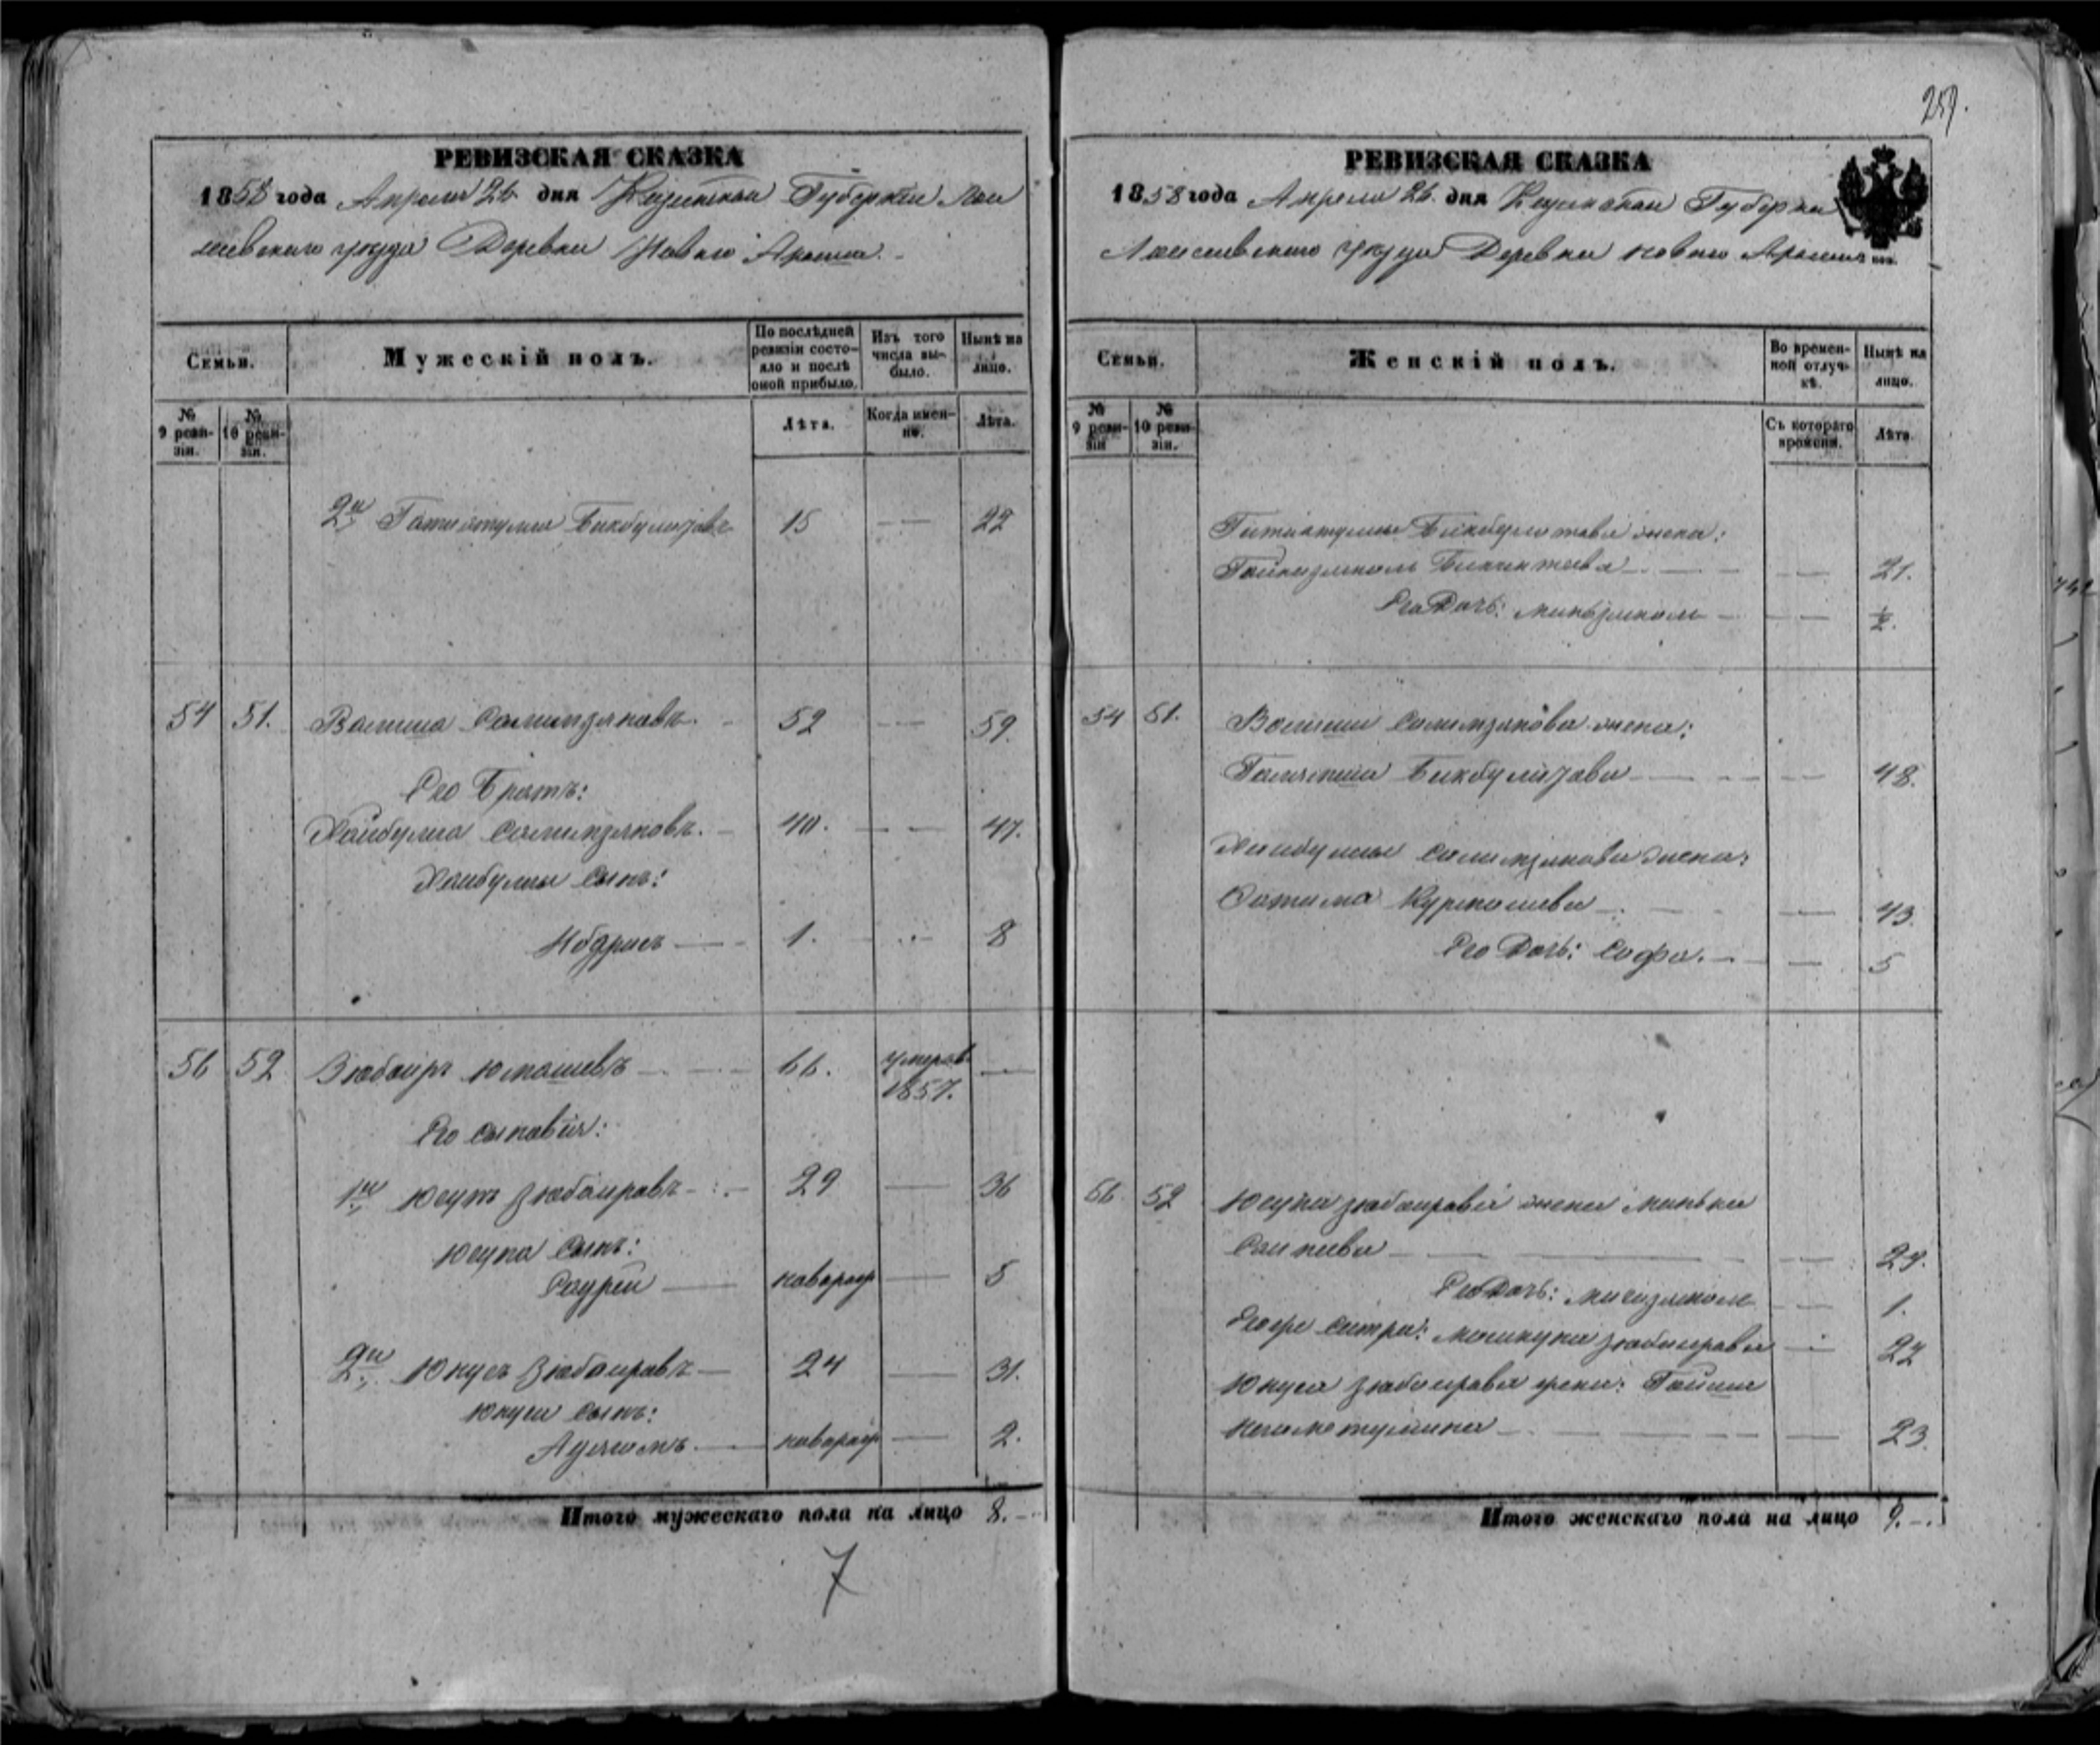 РЕВИЗСКАЯ СКАЗКА
1858 года Апреля 26 дня Казанской Губернiи Лаи
шевскаго уезда Деревни Новаго Арыша.
Семьи.
Мужескій полъ.
По послѣдней ревизіи состояло и послѣ оной прибыло.
Изъ того числа выбыло.
Нынѣ на лицо.
№ 9 ревизіи.
№ 10 ревизіи.
Лѣта.
Когда именно.
Лѣта.
2й Гатиатулла Бикбулатовъ 15 — 22
54 51. Валиша Салимзяновъ. 52 — 59.
Его Братъ:
Хайбулла Салимзяновъ. 40. — 47.
Хайбуллы Сынъ:
1. — 8
56 52 Зюбаиръ Юмашевъ 66. умеръ 1857. —
Его Сыновья:
1й Юсупъ Зюбаировъ 29 — 36
Юсупа Сынъ:
новорож — 5
2й Юнусъ Зюбаировъ 24 — 31.
Юнуса Сынъ:
новорож — 2.
Итого мужескаго пола на лицо 8.
7
259.
РЕВИЗСКАЯ СКАЗКА
1858 года Апреля 26. дня Казанской Губерни
Лаишевскаго уезда Деревни Новаго Арыша
Семьи.
Женскій полъ.
Во временной отлучкѣ.
Нынѣ на лицо.
№ 9 ревизіи
№ 10 ревизіи.
Съ котораго времени.
Лѣта.
Гатиатуллы Бикбулатова жена:
— 21.
Его Дочь: — ½.
54 51. Валиши Салимзянова жена:
Бикбулатова — 48.
Хайбуллы Салимзянова жена:
Фатима Курмашева — 43.
Его Дочь: Сафа. — 5
56. 52 Юсупа Зюбаирова жена
— 29.
Его Дочь: — 1.
Его же Сестра: Зюбаирова — 22
Юнуса Зюбаирова жена:
— 23.
Итого женскаго пола на лицо 9.